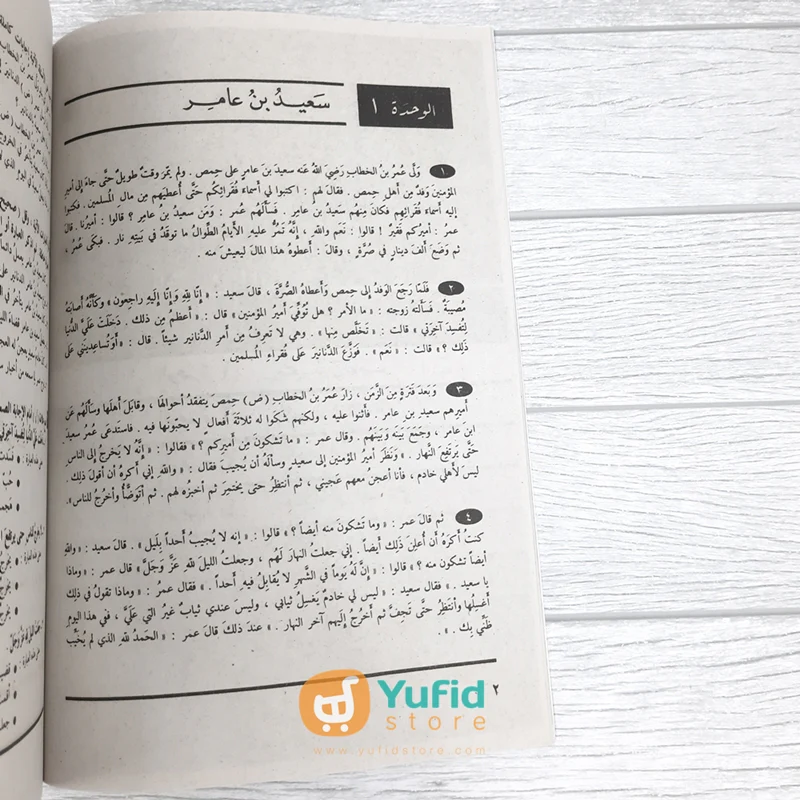 الوحدة ١
سَعيدُ بنُ عامِر
١ وَلَّى عُمرُ بنُ الخطاب رَضِيَ اللهُ عنه سعيدَ بنَ عامرٍ على حِمص . ولم يَمُرّ وقتٌ طويلٌ حتَّى جاءَ إلى أميرِ
المؤمنين وَفدٌ مِن أهلِ حِمص . فقالَ لهم : اكتبوا لي أسماءَ فُقَرائِكُم حَتَّى أُعطيَهم مِن مالِ المسلمين . فكتبوا
إليه أسماءَ فُقرائِهم فكانَ مِنهم سَعيدُ بن عامرٍ . فسأَلَهُم عمر : وَمَن سعيدُ بن عامِر ؟ قالوا : أميرنا . قالَ
عمرُ : أميركم فقيرٌ ! قالوا : نَعَم واللهِ ، إنَّه تَمُرُّ عليهِ الأيامُ الطِّوالُ ما توقدُ في بَيتِهِ نار . فبكَى عُمرُ ،
ثم وَضَعَ ألفَ دينارٍ في صُرَّةٍ ، وقالَ : أعطوهُ هذا المالَ ليعيشَ منه .
٢ فَلمَّا رَجَعَ الوَفدُ إلى حِمص وَأعطاهُ الصُّرَّةَ ، قال سعيد : « إنَّا لِلّهِ وَإنَّا إلَيهِ راجعون » وكأنَّهُ أصابَتهُ
مُصيبَةٌ . فسألَتهُ زوجته : « ما الأمر ؟ هل تُوُفِّيَ أميرُ المؤمنين » قال : « أعظمُ مِن ذلك . دَخَلَتْ عَلَيَّ الدُّنيا
لِتُفسِدَ آخِرَتي » قالت : « تَخَلَّص مِنها » . وهي لا تَعرِفُ مِن أمرِ الدَّنانيرِ شيئاً . قال : « أوَتُساعِدينَني على
ذَلِكَ ؟ » قالت : « نَعَم » . فَوَزَّعَ الدَّنانيرَ على فُقراءِ المسلمين .
٣ وَبعدَ فَترَةٍ مِنَ الزَّمَن ، زارَ عُمَرُ بنُ الخطاب (ض) حِمصَ يتفقدُ أحوالها ، وقابَلَ أهلَها وسألَهُم عَن
أميرهم سعيدِ بنِ عامر . فأثنوا عليه ، ولكنهم شكَوا له ثلاثَةَ أفعالٍ لا يحبّونَها فيه . فاستدعَى عُمرُ سعيدَ
ابنَ عامرٍ ، وجمَعَ بَينَهُ وَبَينَهُم . وقالَ عمر : « ما تَشكونَ مِن أميرِكم ؟ » فقالوا : « إنَّهُ لا يَخرجُ إلى الناسِ
حَتَّى يَرتَفِعَ النَّهار . » وَنَظَرَ أميرُ المؤمنين إلى سعيدٍ وسألَهُ أن يُجيبَ فقال : « واللهِ إني أكرهُ أن أقولَ ذلك .
ليسَ لأهلي خادم ، فأنا أعجنُ معهم عَجيني ، ثم أنتظِرُ حتى يختمِرَ ثم أخبزُه لهم . ثم أتوَضَّأُ وأخرُجُ للناس».
٤ ثم قالَ عمر : « وما تَشكونَ منه أيضاً ؟ » قالوا : « إنه لا يُجيبُ أحداً بِلَيل » . قالَ سعيد : « واللهِ
كنتُ أكرَهُ أن أُعلِنَ ذَلِكَ أيضاً . إني جعلتُ النهارَ لَهُم ، وجعلتُ الليلَ للهِ عَزَّ وَجَلَّ » قال عمر : « وماذا
أيضاً تشكونَ منه ؟ » قالوا : « إنَّ لَهُ يَوماً في الشَّهرِ لا يُقابِلُ فيه أحداً . » فقال عمر : « وماذا تقولُ في ذلِكَ
يا سعيد . » فقال سعيد : « ليس لي خادمٌ يَغسِلُ ثيابي ، وليسَ عندي ثيابٌ غيرُ التي عَلَيَّ ، ففي هذا اليومِ
أغسِلُها وأنتَظِرُ حتَّى تَجِفَّ ثم أخرُجُ إلَيهِم آخرَ النهار . » عندَ ذلك قالَ عمر : « الحَمدُ للهِ الذي لم يُخَيِّب
ظَنِّي بِك . » .
٢
Yufid
store
www.yufidstore.com